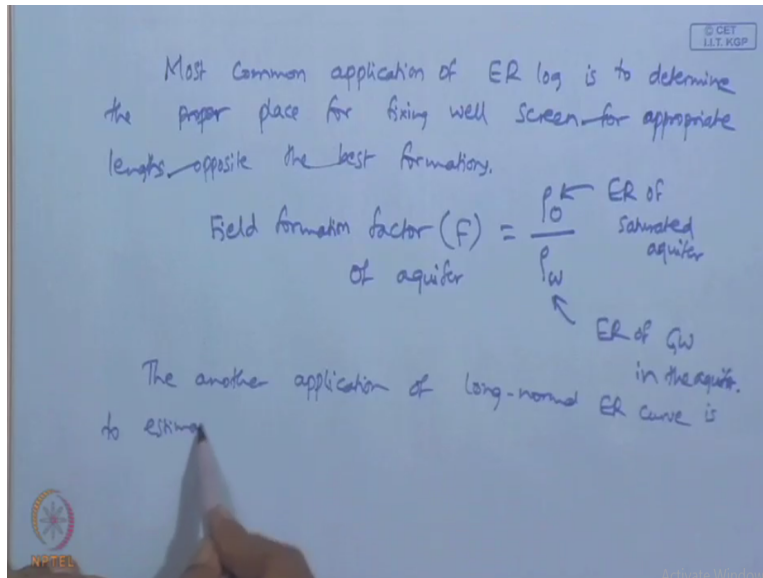 © CET
I.I.T. KGP
Most Common application of ER log is to determine
the proper place for fixing well screen for appropriate
lengths opposite the best formations.
Field formation factor (F) = ρo / ρw
of aquifer
ER of
saturated
aquifer
ER of GW
in the aquifer.
The another application of long-normal ER curve is
to estima
NPTEL
Activate Windows